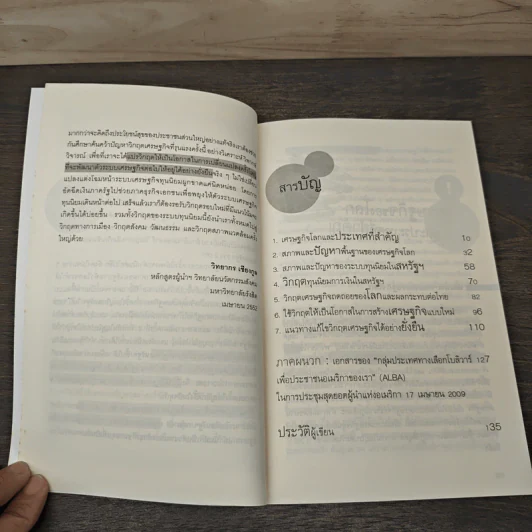 มากกว่าจะคิดถึงประโยชน์สุขของประชาชนส่วนใหญ่อย่างแท้จริง
กันศึกษาค้นคว้าปัญหาวิกฤตเศรษฐกิจที่รุนแรงครั้งนี้ อย่างวิเคราะห์
วิจารณ์ เพื่อที่เราจะได้แปรวิกฤตให้เป็นโอกาสในการเปลี่ยนแปลง
ที่จะพัฒนาตัวระบบเศรษฐกิจต่อไปให้อยู่ได้อย่างยั่งยืนจริง ๆ ไม่ใช่
แปลงแต่งโฉมหน้าระบบเศรษฐกิจทุนนิยมผูกขาดแค่นิดหน่อย
อัดฉีดเงินภาครัฐไปช่วยภาคธุรกิจเอกชนเพื่อพยุงให้ตัวระบบเศรษฐกิจ
ทุนนิยมเดินหน้าต่อไป เสร็จแล้วเราก็ต้องรอรับวิกฤตรอบใหม่ที่มีแนวโน้ม
เกิดขึ้นได้บ่อยขึ้น รวมทั้งวิกฤตของระบบทุนนิยมนี้ยังนำเราไปสู่
วิกฤตทางการเมือง วิกฤตสังคม วัฒนธรรม และวิกฤตสภาพแวดล้อมครั้ง
ใหญ่ด้วย
วิทยากร เชียงกูล
หลักสูตรผู้นำฯ วิทยาลัยนวัตกรรมสังคม
มหาวิทยาลัยรังสิต
เมษายน 2552
สารบัญ
1. เศรษฐกิจโลกและประเทศที่สำคัญ 10
2. สภาพและปัญหาพื้นฐานของเศรษฐกิจโลก 32
3. สภาพและปัญหาของระบบทุนนิยมในสหรัฐฯ 58
4. วิกฤตทุนนิยมการเงินในสหรัฐฯ 70
5. วิกฤตเศรษฐกิจถดถอยของโลกและผลกระทบต่อไทย 82
6. ใช้วิกฤตให้เป็นโอกาสในการสร้างเศรษฐกิจแบบใหม่ 96
7. แนวทางแก้ไขวิกฤตเศรษฐกิจได้อย่างยั่งยืน 110
ภาคผนวก : เอกสารของ "กลุ่มประเทศทางเลือกโบลิวาร์ 127
เพื่อประชาชนอเมริกาของเรา" (ALBA)
ในการประชุมสุดยอดผู้นำแห่งอเมริกา 17 เมษายน 2009
ประวัติผู้เขียน 135